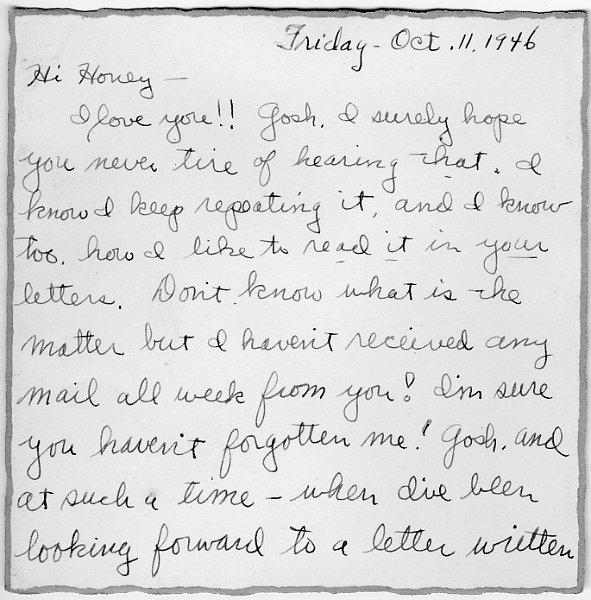 Friday - Oct. 11, 1946
Hi Honey —
I love you!! Gosh, I surely hope
you never tire of hearing that. I
know I keep repeating it, and I know
too, how I like to read it in your
letters. Don't know what is the
matter but I haven't received any
mail all week from you! I'm sure
you haven't forgotten me! Gosh, and
at such a time – when I've been
looking forward to a letter written